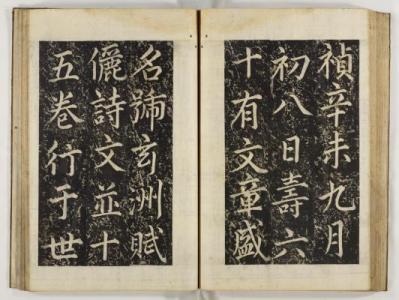 禎辛未九月
初八日壽六
十有文章盛
名號玄洲賦
儷詩文並十
五卷行于世